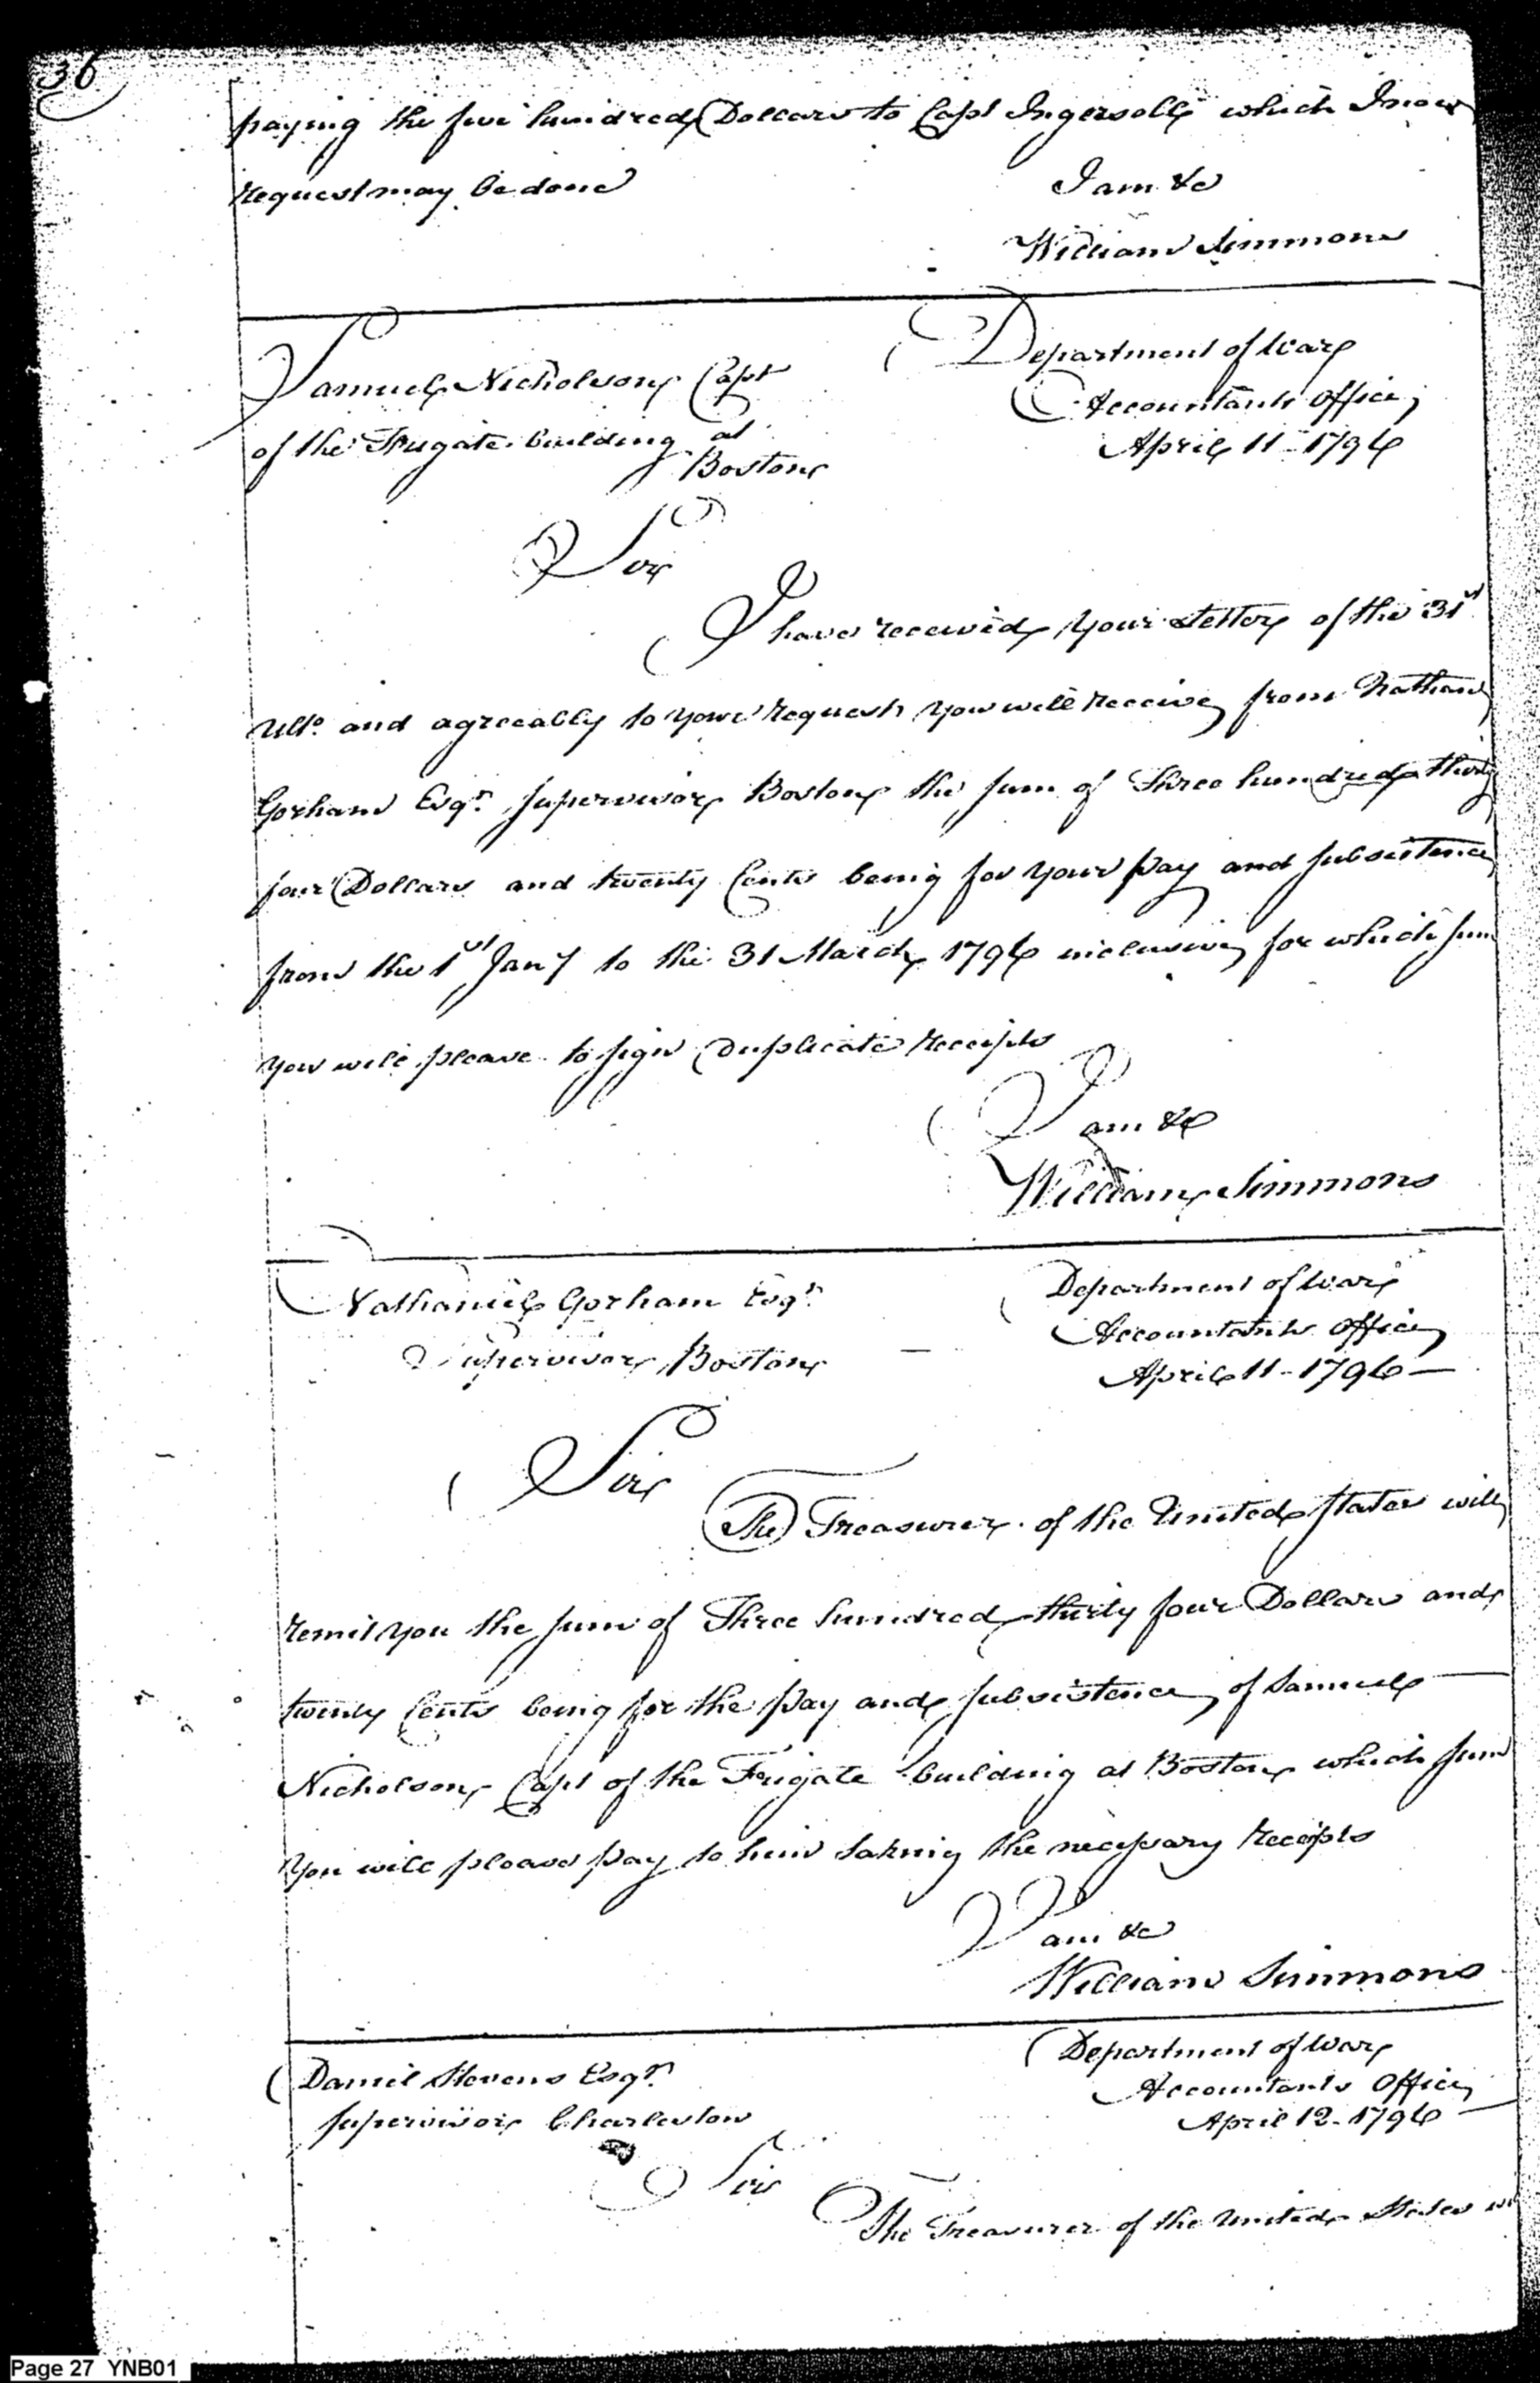 36
paying the five hundred Dollars to Capt Ingersoll which I now
request may be done
I am &c
William Simmons
Samuel Nicholson Capt
of the Frigate building at
Boston
Department of War
Accountants Office
April 11 - 1796
Sir
I have received your Letter of the 31st
Ulto. and agreeably to your request you will receive from Nathan
Gorham Esqr. Supervisor Boston the sum of Three hundred thirty
four Dollars and twenty Cents being for your pay and subsistence
from the 1st Jany to the 31 March 1796 inclusive for which sum
you will please to sign duplicate receipts
I am &c
William Simmons
Nathaniel Gorham Esqr.
Supervisor Boston
Department of War
Accountants Office
April 11 - 1796 —
Sir
The Treasurer of the United States will
remit you the sum of Three hundred thirty four Dollars and
twenty Cents being for the pay and subsistence of Samuel
Nicholson Capt of the Frigate building at Boston which sum
you will please pay to him taking the necessary receipts
I am &c
William Simmons
Daniel Stevens Esqr.
Supervisor Charleston
Department of War
Accountants Office
April 12 - 1796 —
Sir
The Treasurer of the United States
Page 27 YNB01